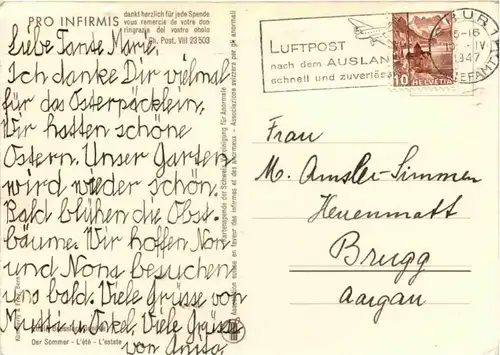 PRO INFIRMIS
dankt herzlich für jede Spende
vous remercie de votre don
ringrazia del vostro obolo
Ch. Post. VIII 23503
Liebe Tante Marie,
Ich danke Dir vielmal
für das Osterpäcklein.
Wir hatten schöne
Ostern. Unser Garten
wird wieder schön.
Bald blühen die Obst-
bäume. Wir hoffen Non
und Nona besuchen
uns bald. Viele Grüsse von
Mutti u Onkel. Viele Grüsse
von Anita
Der Sommer - L'été - L'estate
Kartenspende der Schweizer. Vereinigung für Anormale - Associazione svizzera per gli anormali
Association suisse en faveur des infirmes et des anormaux
LUFTPOST
nach dem AUSLAN
schnell und zuverläss
15-16
IV
1947
10 HELVETIA
Frau
M. Amsler-Simmen
Herrenmatt
Brugg
Aargau